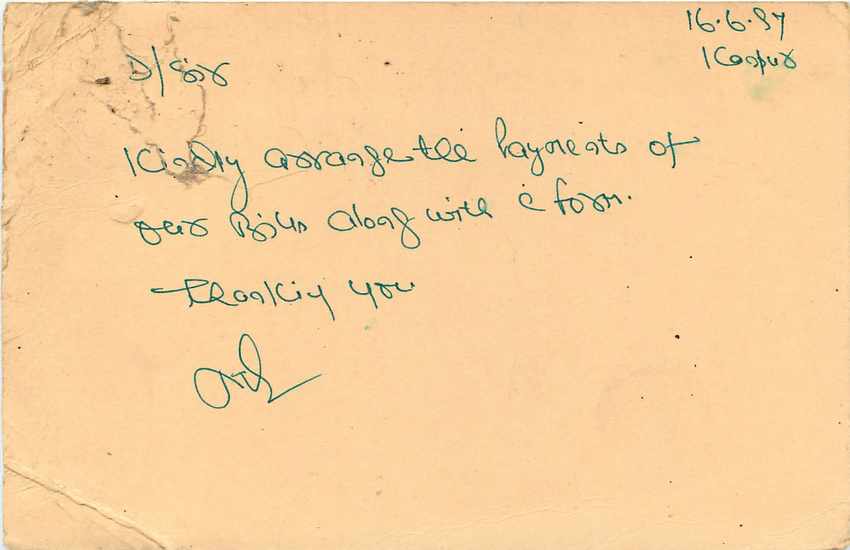 16.6.87
Kanpur
D/Sir
Kindly arrange the payments of
our Bills along with c form.
Thanking you